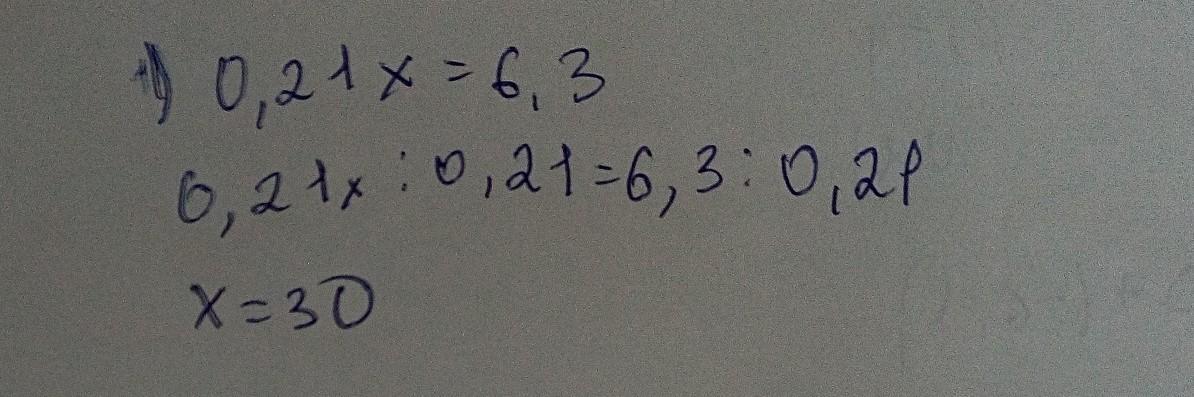 1) 0,21x=6,3
0,21x:0,21=6,3:0,21
x=30